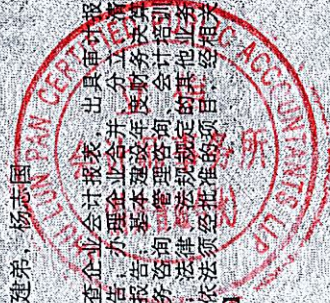 建弟，杨志国
查企业会计报表，出具审计报
告；办理企业合并、分立、清
报告；基本建设年度财务决算
务咨询、管理咨询、会计培训
法律、法规规定的其他业务
依法须经批准的项目，经相关
LUN PAN CERTIFIED ACCOUNTANTS LLP
所